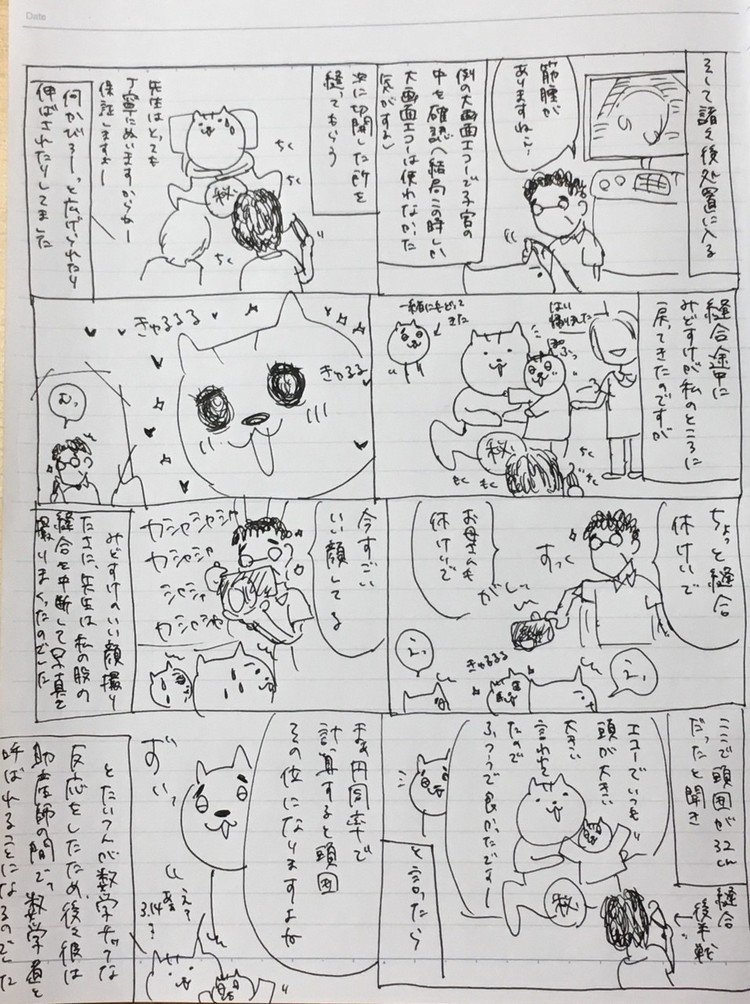 Date
そして諸々後処置に入る
筋腫が
ありますねぇ…
例の大画面エコーで子宮の
中を確認(結局この時しか
大画面エコーは使われなかった
気がする)
次に切開した所を
縫ってもらう
先生はとっても
丁寧にぬいますからねー
保証しますよー
何かびろーっと広げられたり
伸ばされたりしてました
ちく
ちく
ちく
秘
縫合途中に
みどすけが私のところに
戻ってきたのですが
はい
ぽふっ
一緒にもどって
きた
秘
ちく
ちく
ちく
ちく
きゅるるる
きゅるる
むっ
ちょっと縫合
休けいで
すっく
お母さんも
休けいで
がしーっ
えっ
えっ
きゅるるる
今すごい
いい顔してる
カシャシャシャ
カシャシャ
シャシャ
カシャシャ
みどすけのいい顔撮り
たさに、先生は私の股の
縫合を中断して写真を
撮りまくったのでした
ここで頭囲が32cm
だったと聞き
縫合
後半戦
エコーでいつも
頭が大きい
大きい
言われて
たので
ふつうで良かったですー
秘
と言ったら
まぁ円周率で
計算すると頭囲
その位になりますよね
ずいっ
え?
あぁ
3.14
?
とたいつんが数学チックな
反応をしたため、後々彼は
助産師の間で、数学者と
呼ばれることになるのでした